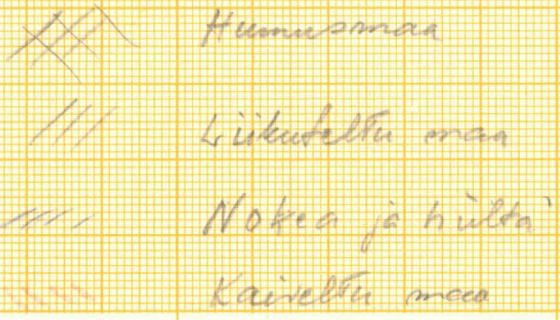 Humusmaa
Liikuteltu maa
Nokea ja hiiltä
Kaiveltu maa